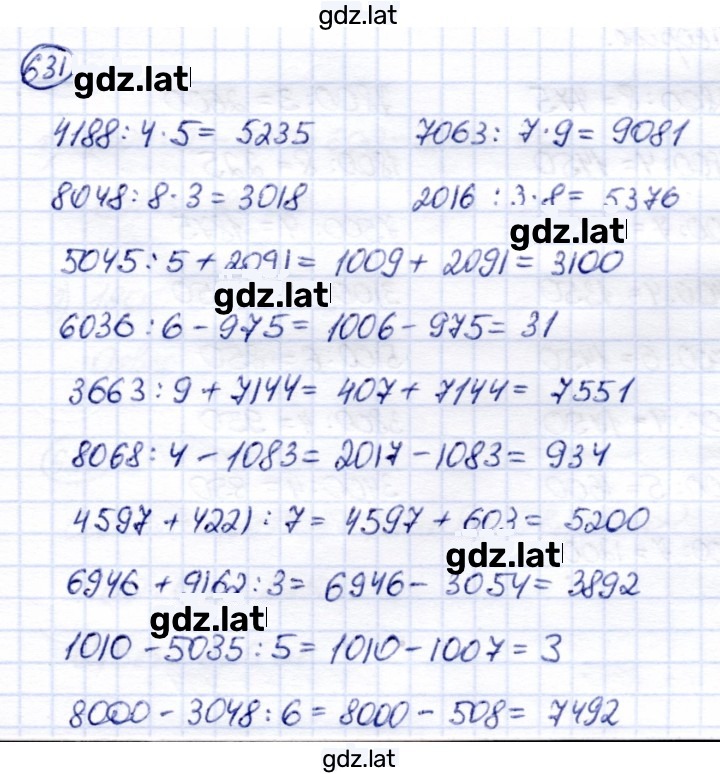 gdz.lat
631
gdz.lat
4188 : 4 · 5 = 5235 7063 : 7 · 9 = 9081
8048 : 8 · 3 = 3018 2016 : 3 · 8 = 5376
gdz.lat
5045 : 5 + 2091 = 1009 + 2091 = 3100
gdz.lat
6036 : 6 - 975 = 1006 - 975 = 31
3663 : 9 + 7144 = 407 + 7144 = 7551
8068 : 4 - 1083 = 2017 - 1083 = 934
4597 + 4221 : 7 = 4597 + 603 = 5200
gdz.lat
6946 + 9162 : 3 = 6946 - 3054 = 3892
gdz.lat
1010 - 5035 : 5 = 1010 - 1007 = 3
8000 - 3048 : 6 = 8000 - 508 = 7492
gdz.lat